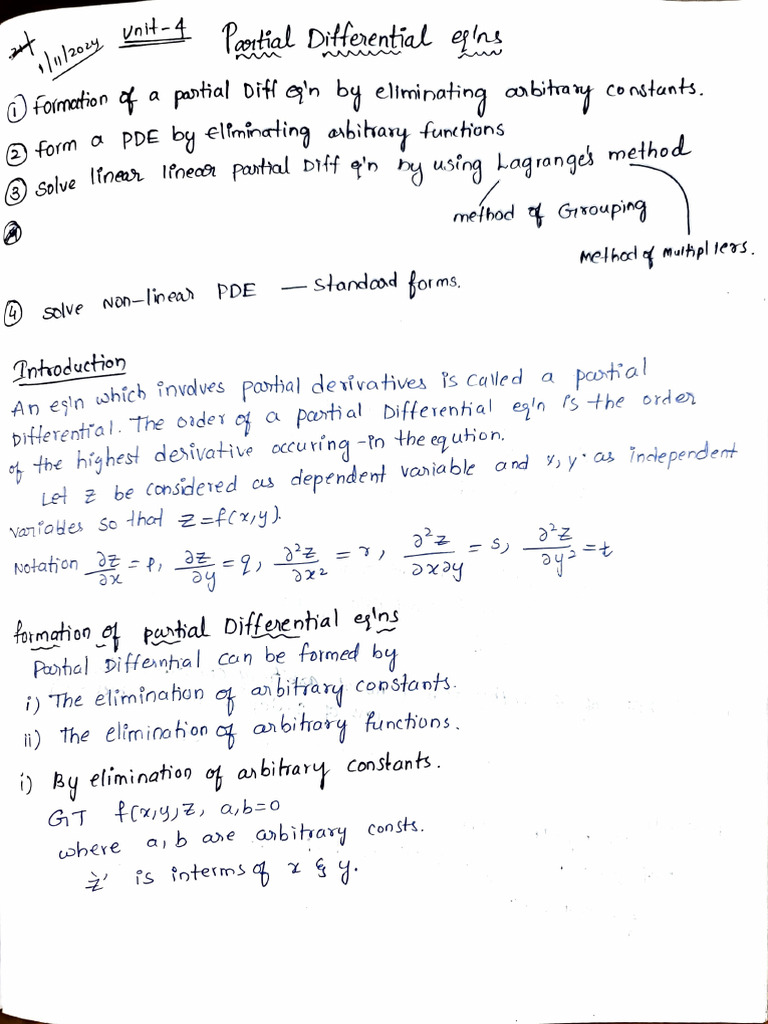 1/11/2024 Unit-4 Partial Differential eq'ns
① Formation of a partial Diff eq'n by eliminating arbitrary constants.
② form a PDE by eliminating arbitrary functions
③ Solve linear linear partial Diff eq'n by using Lagrange's method
method of Grouping
Method of multipliers.
④ Solve Non-linear PDE — Standard forms.
Introduction
An eq'n which involves partial derivatives is called a partial
Differential. The order of a partial Differential eq'n is the order
of the highest derivative occuring in the eqution.
Let z be considered as dependent variable and x, y as independent
variables so that z=f(x,y).
Notation ∂z/∂x = p, ∂z/∂y = q, ∂²z/∂x² = r, ∂²z/∂x∂y = s, ∂²z/∂y² = t
formation of partial Differential eq'ns
Partial Differntial can be formed by
i) The elimination of arbitrary constants.
ii) The elimination of arbitrary functions.
i) By elimination of arbitrary constants.
GT f(x,y,z, a,b=0
where a,b are arbitrary consts.
'z' is interms of x & y.